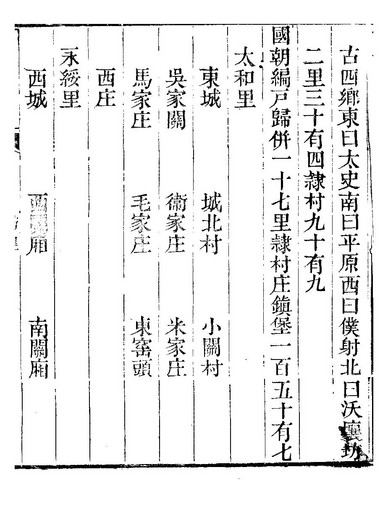 古四鄉東曰太史南曰平原西曰僕射北曰沃壤坊
二里三十有四隷村九十有九
國朝編戸歸併一十七里隷村庄鎮堡一百五十有七
太和里
東城 城北村 小關村
吳家關 衞家庄 米家庄
馬家庄 毛家庄 東窑頭
西庄
永綏里
西城 廂 南關廂